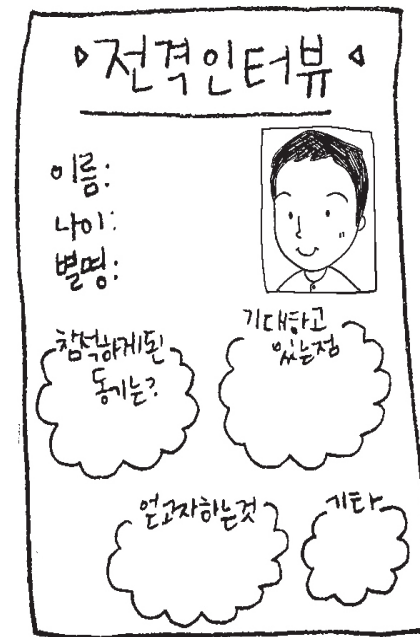 전격인터뷰
이름:
나이:
별명:
참석하게된
동기는?
기대하고
있는점
얻고자하는것
기타